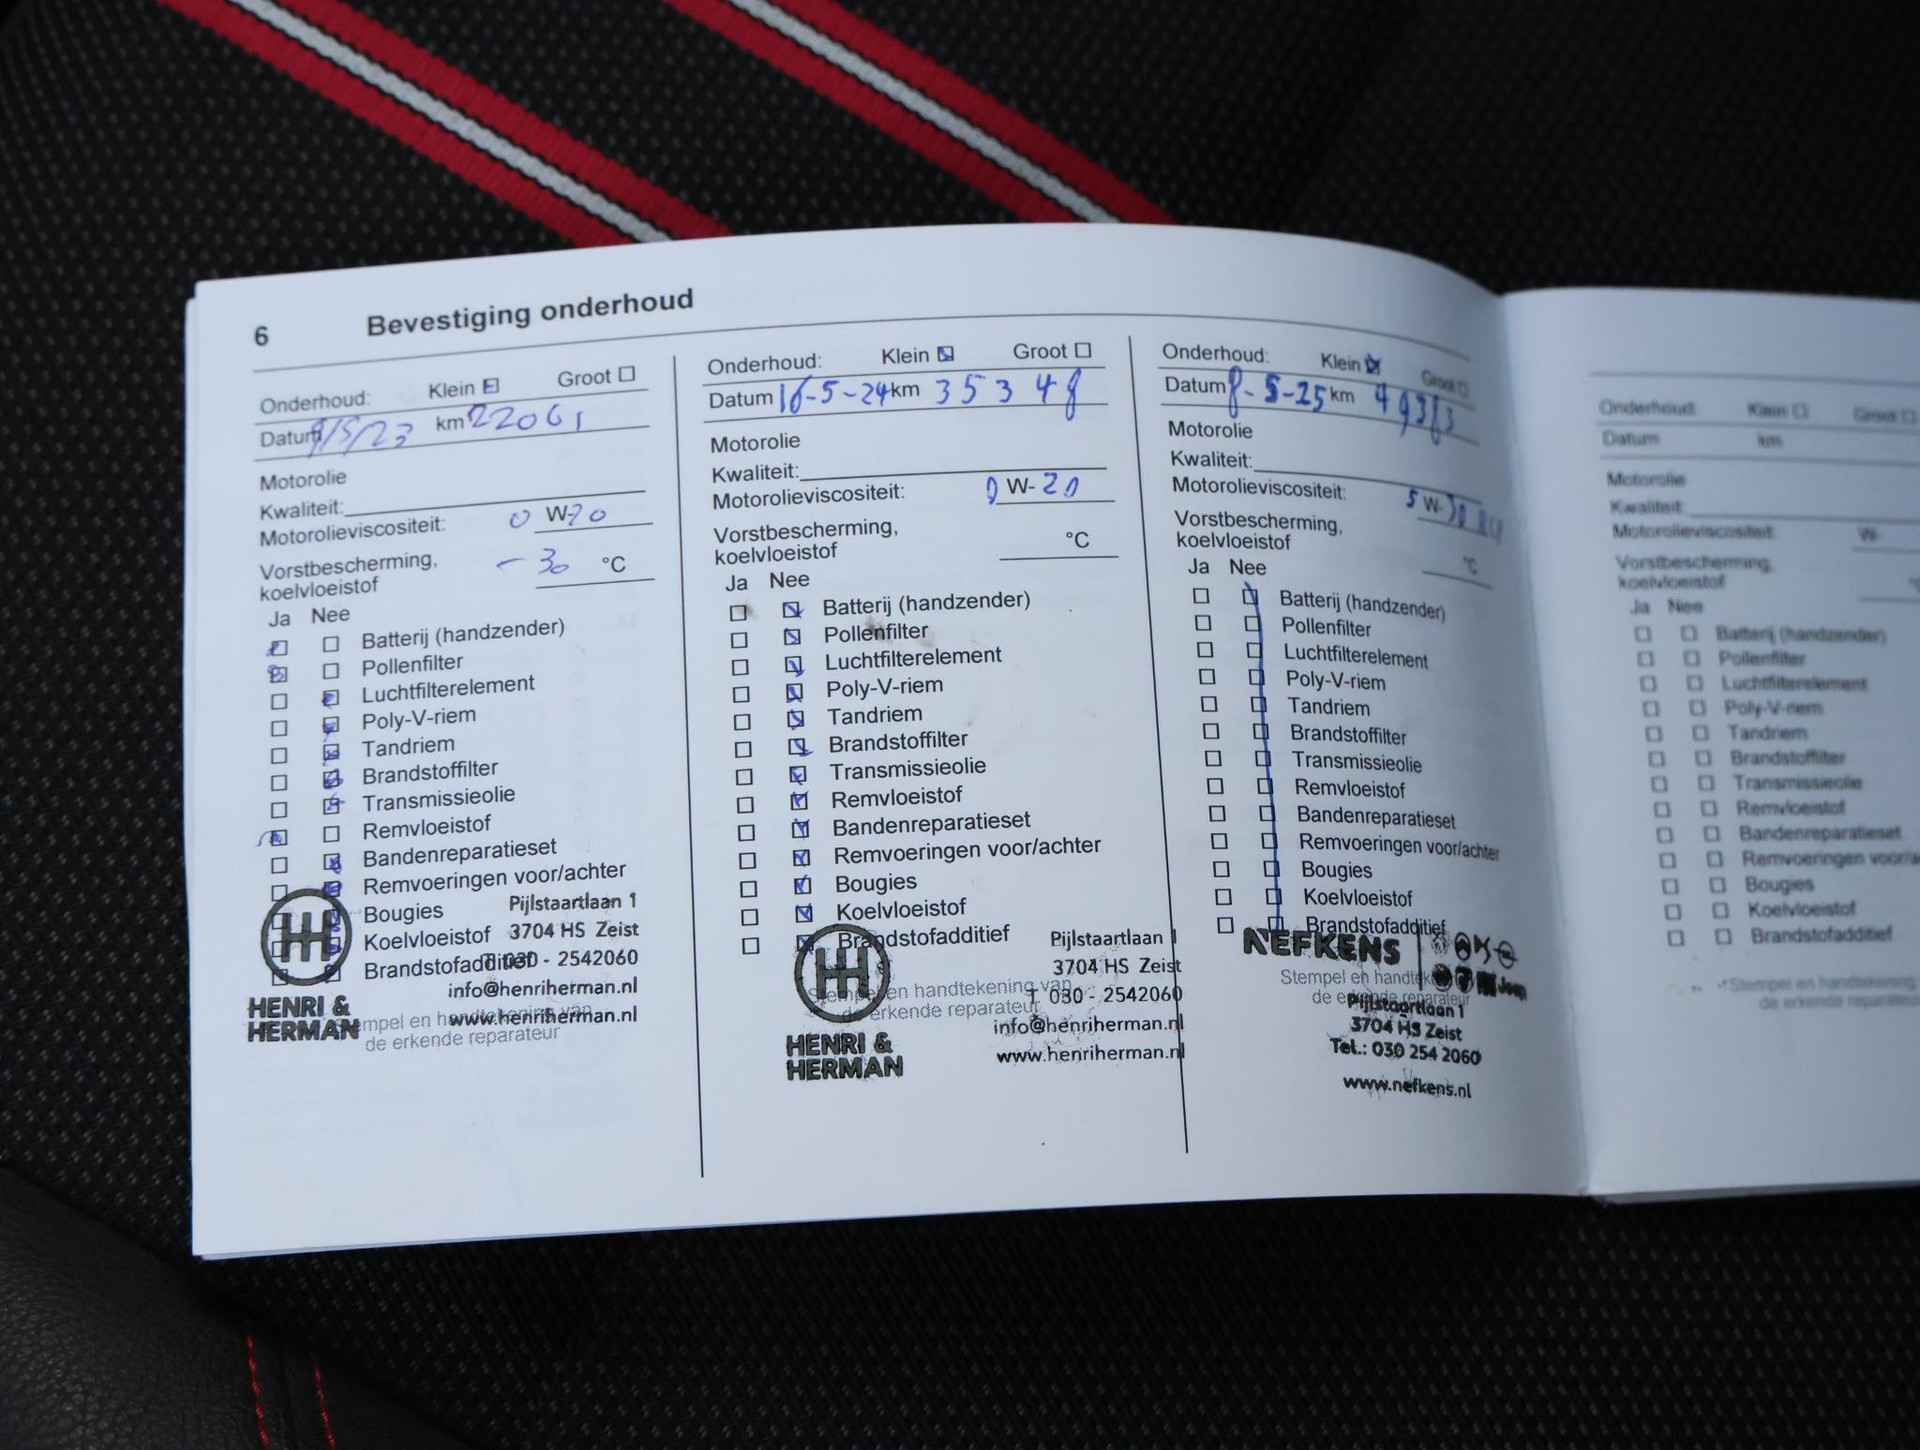 6 Bevestiging onderhoud
Onderhoud: Klein Groot
Datum 9/5/23 km 22061
Motorolie
Kwaliteit:
Motorolieviscositeit: 0 W-20
Vorstbescherming,
koelvloeistof -30 °C
Ja Nee
Batterij (handzender)
Pollenfilter
Luchtfilterelement
Poly-V-riem
Tandriem
Brandstoffilter
Transmissieolie
Remvloeistof
Bandenreparatieset
Remvoeringen voor/achter
Bougies
Koelvloeistof
Brandstofadditief
Stempel en handtekening van
de erkende reparateur
HENRI &
HERMAN
Pijlstaartlaan 1
3704 HS Zeist
T 030 - 2542060
info@henriherman.nl
www.henriherman.nl
Onderhoud: Klein Groot
Datum 16-5-24 km 35348
Motorolie
Kwaliteit:
Motorolieviscositeit: 0 W-20
Vorstbescherming,
koelvloeistof °C
Ja Nee
Batterij (handzender)
Pollenfilter
Luchtfilterelement
Poly-V-riem
Tandriem
Brandstoffilter
Transmissieolie
Remvloeistof
Bandenreparatieset
Remvoeringen voor/achter
Bougies
Koelvloeistof
Brandstofadditief
Stempel en handtekening van
de erkende reparateur
HENRI &
HERMAN
Pijlstaartlaan 1
3704 HS Zeist
T 030 - 2542060
info@henriherman.nl
www.henriherman.nl
Onderhoud: Klein Groot
Datum 8-5-25 km
Motorolie
Kwaliteit:
Motorolieviscositeit: 5 W-
Vorstbescherming,
koelvloeistof °C
Ja Nee
Batterij (handzender)
Pollenfilter
Luchtfilterelement
Poly-V-riem
Tandriem
Brandstoffilter
Transmissieolie
Remvloeistof
Bandenreparatieset
Remvoeringen voor/achter
Bougies
Koelvloeistof
Brandstofadditief
NEFKENS
Jeep
Stempel en
de erkende reparateur
Pijlstaartlaan 1
3704 HS Zeist
Tel.: 030 254 2060
www.nefkens.nl
Onderhoud: Klein Groot
Datum km
Motorolie
Kwaliteit:
Motorolieviscositeit: W-
Vorstbescherming,
koelvloeistof
Ja Nee
Batterij (handzender)
Pollenfilter
Luchtfilterelement
Poly-V-riem
Tandriem
Brandstoffilter
Transmissieolie
Remvloeistof
Bandenreparatieset
Remvoeringen
Bougies
Koelvloeistof
Brandstofadditief
Stempel en handtekening
de erkende reparateur